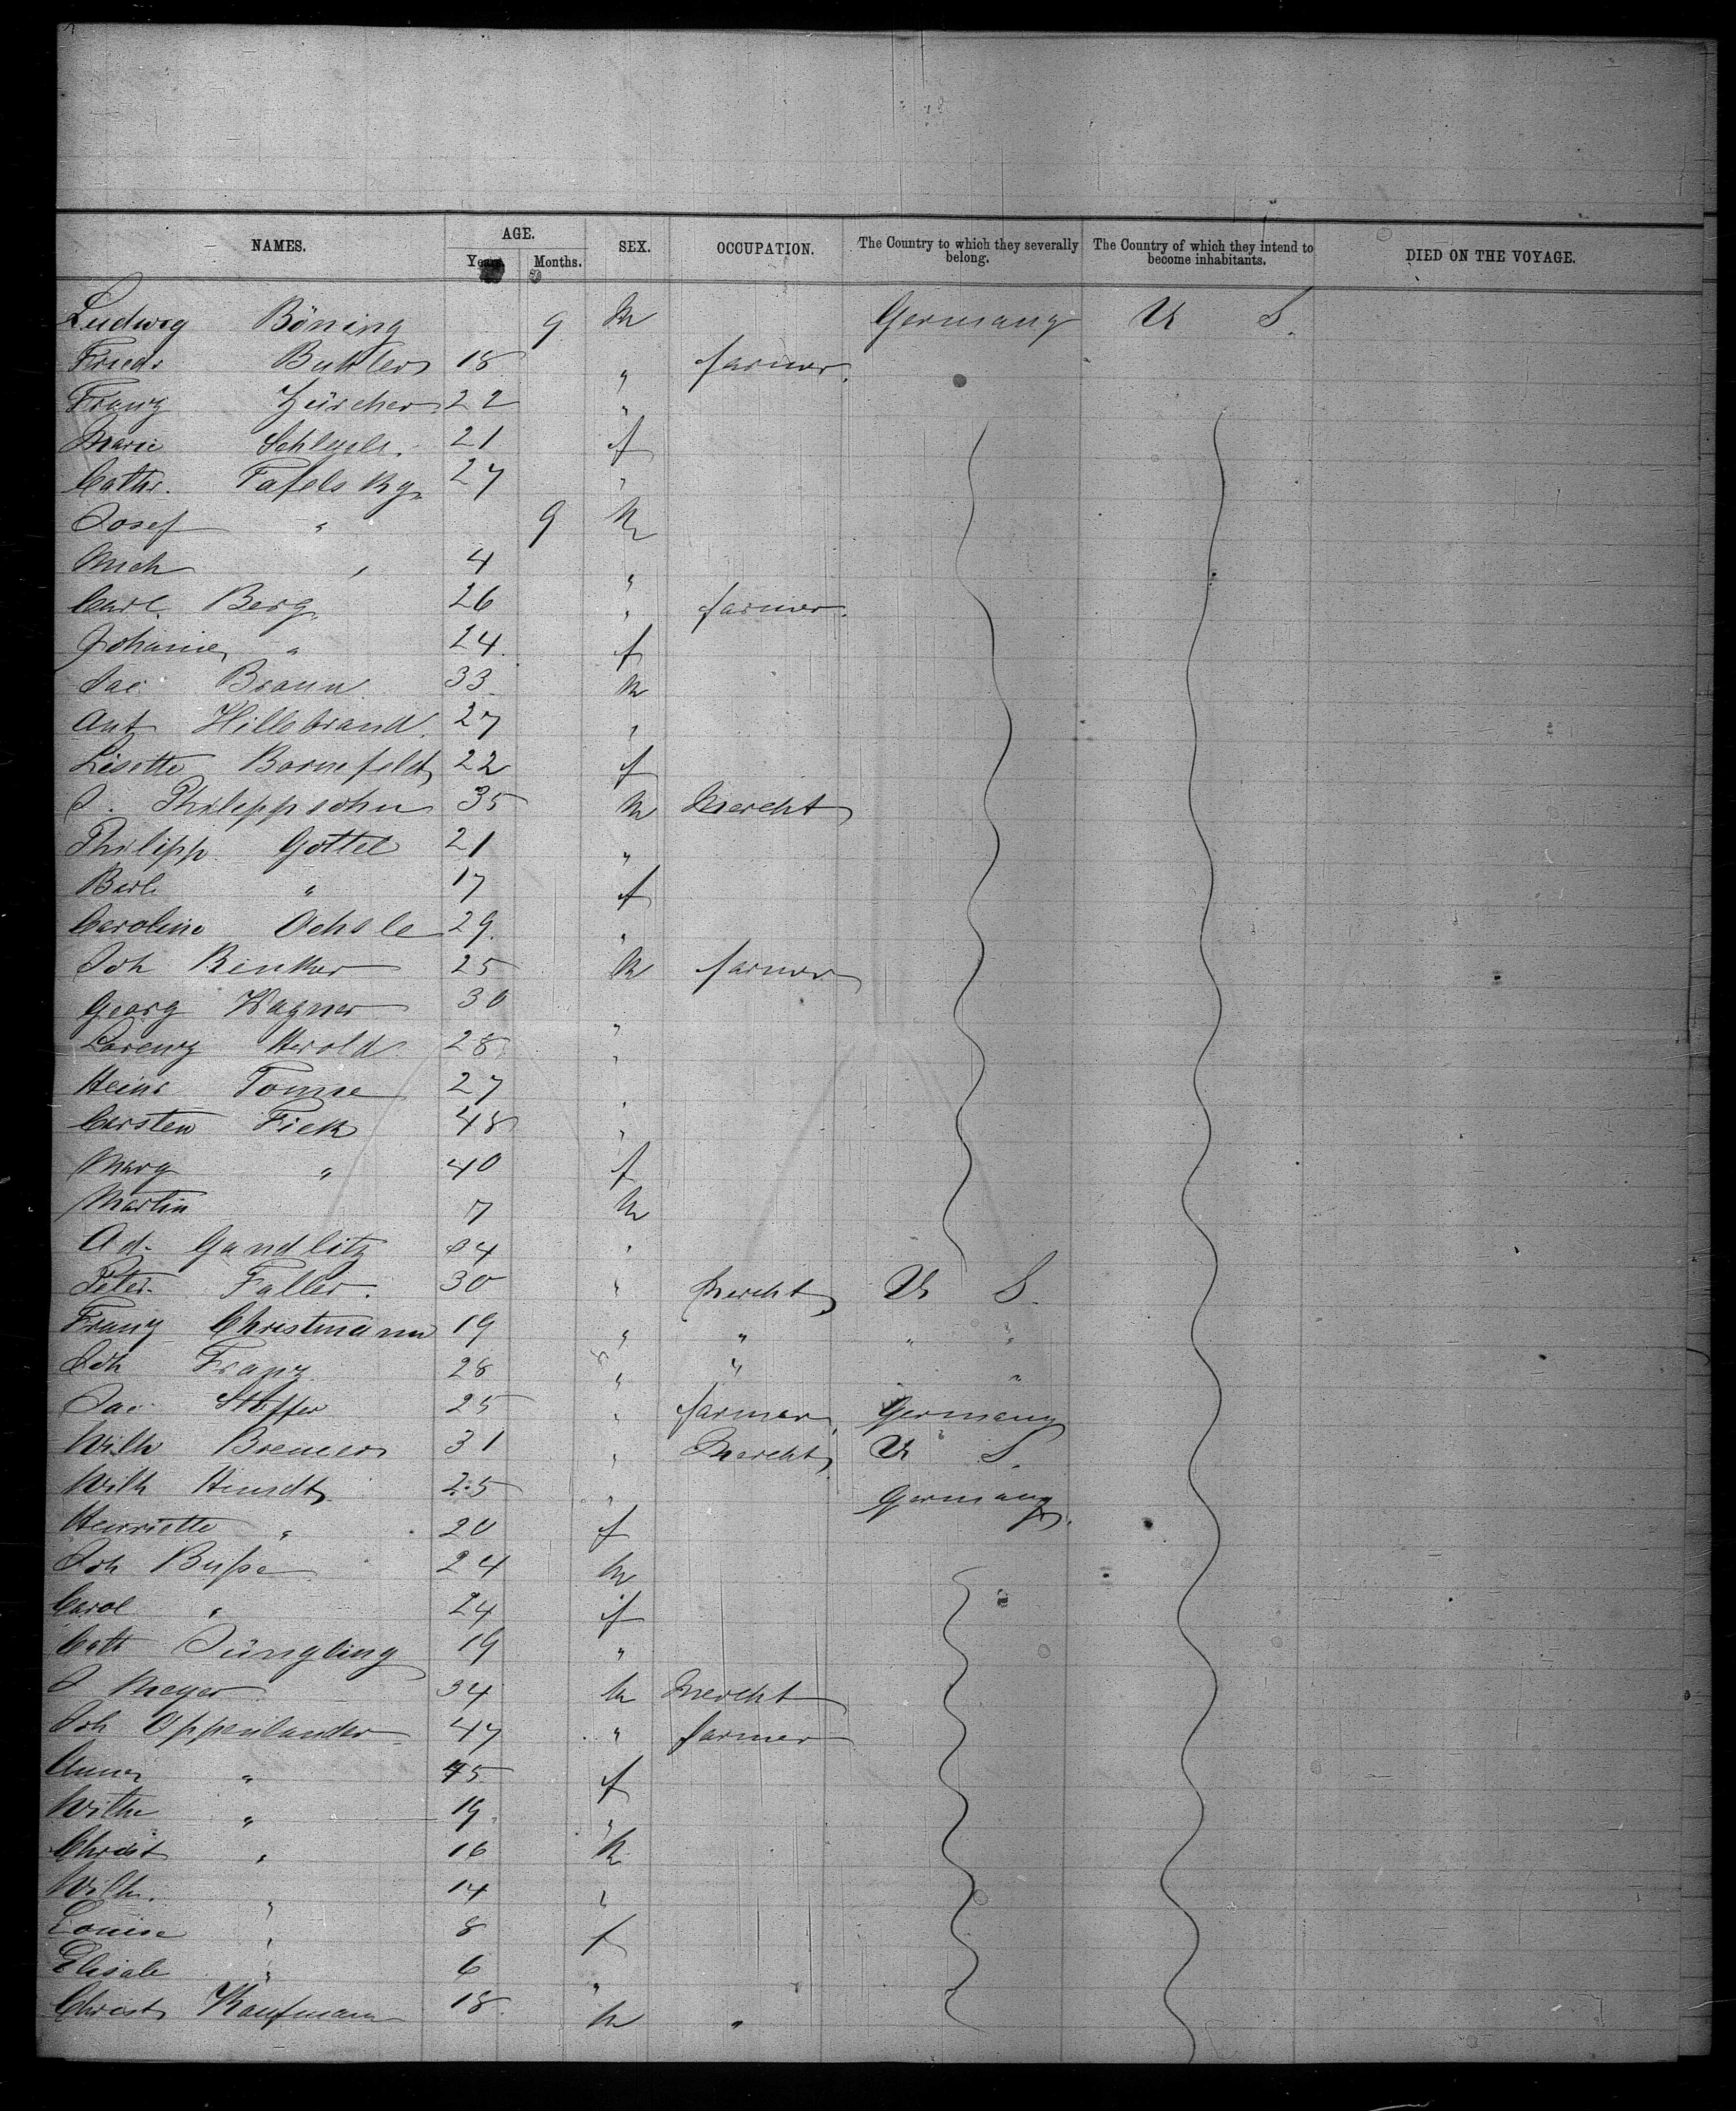 NAMES. AGE. SEX. OCCUPATION. The Country to which they severally belong. The Country of which they intend to become inhabitants. DIED ON THE VOYAGE.
Years. Months.
Ludwig Böning 9 m Germany U S.
Friedr Buhler 18 " farmer.
Franz Zürcher 22 "
Marie 21 f
Cathr. 27 "
Josef " 9 m
Mich " 4 "
Carl Berg 26 " farmer.
Johanne " 24 f
Jac Braun 33 m
Ant Hillebrand. 27 "
Lisette Bornefeld 22 f
J. Philippsohn 35 m Mercht
Philipp Gottel 21 "
Barb " 17 f
Caroline Ochsle 29. "
Joh Renker 25 m farmer
Georg Wagner 30 "
Lorenz Herold 28 "
Heinr Tonne 27 "
Carsten Fick 48 "
Marg " 40 f
Martin 7 m
Ad. Gandlitz 34 "
Peter Faller. 30 " Mercht U S.
Franz Christmann 19 " " " "
Joh Franz 28 " " "
Jac Stoffer 25 " farmer Germany
Wilh Bremer 31 " Mercht U S.
Wilh 25 " Germany.
Henriette " 20 f
Joh Buße 24 m
Carol " 24 f
Cath Jüngling 19 "
J Meyer 34 m Mercht
Joh Oppenlander 47 " farmer
Anna " 45 f
Wilhe " 19. "
Christ " 16 m
Wilh. " 14 "
Louise " 8 f
Elisab " 6 "
Christ Kaufmann 18. m "